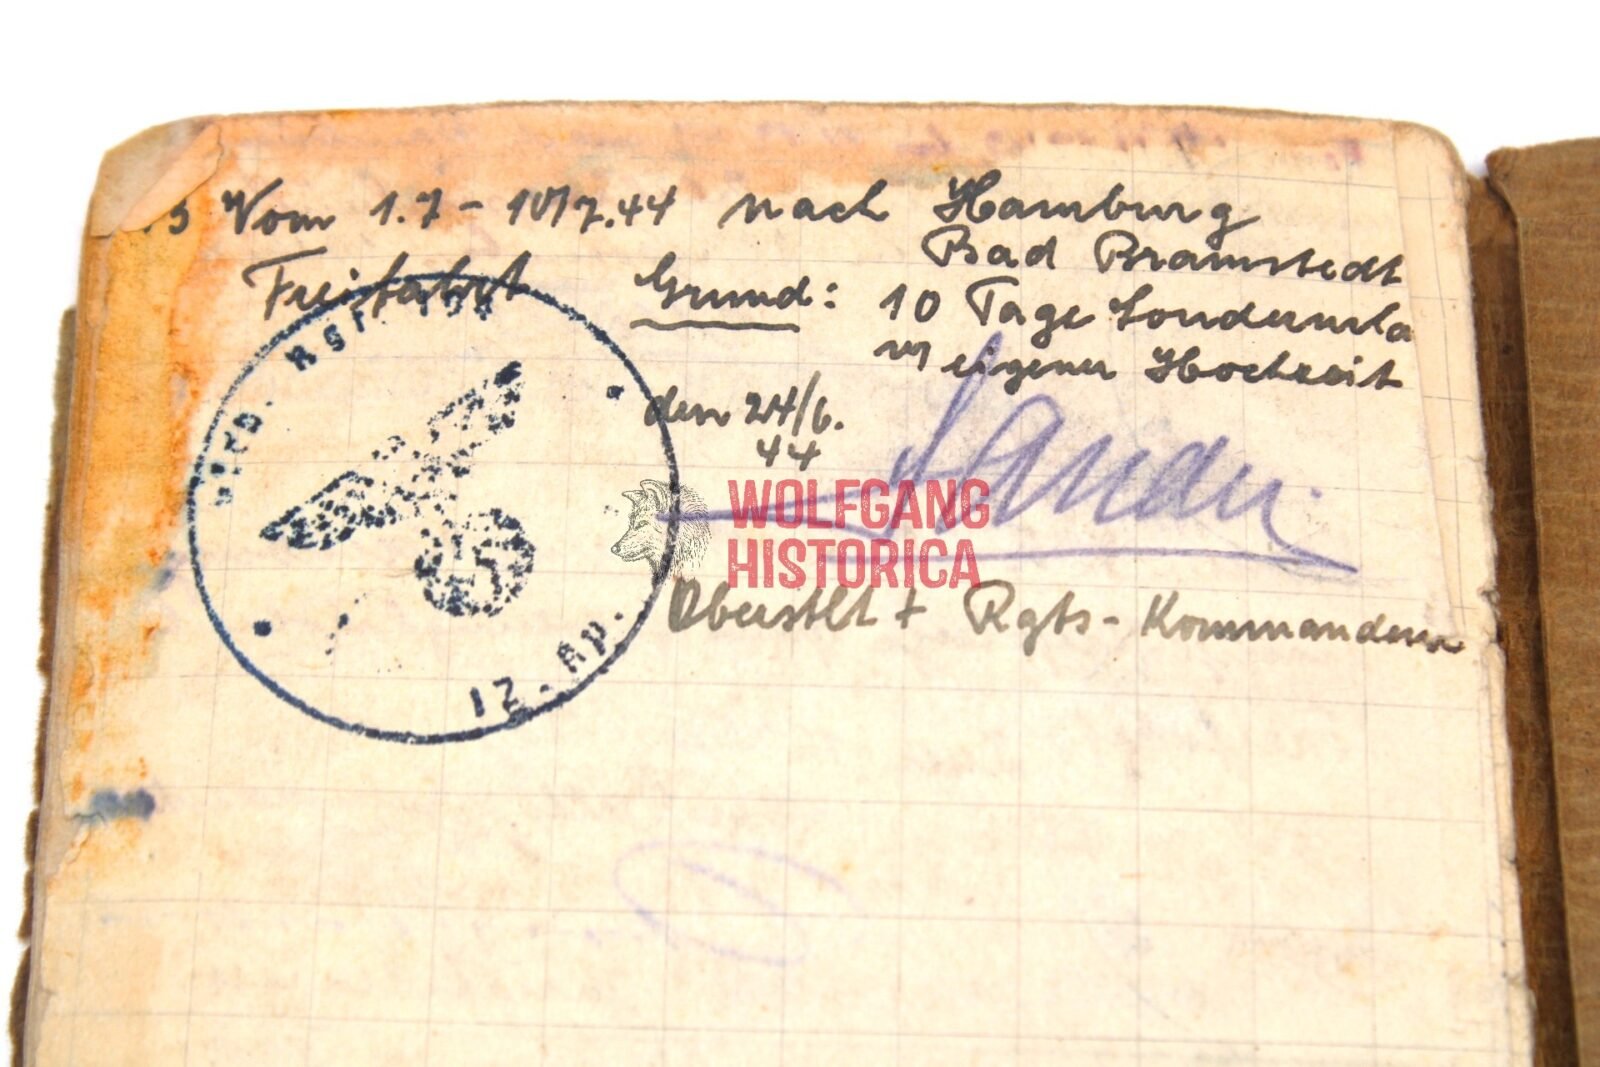 Vom 1.7 - 10/7.44 nach Hamburg
Bad Bramstedt
Freifahrt Grund: 10 Tage Sonderurla
eigener Hochzeit
den 24/6.
44
Oberstlt + Rgts-Kommandeur
Rgt.
12. Kp.
WOLFGANG
HISTORICA